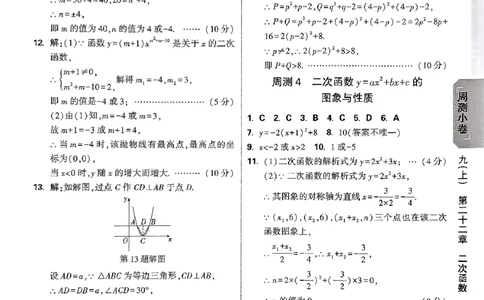 ∴n=±4,
即 m 的值为 40,n 的值为 4 或-4. …… (10 分)
12. 解:(1)∵ 函数 y=(m+1)x^{m²+m-10} 是关于 x 的二次
函数,
∴ {m+1≠0, m²+m-10=2, 解得 m₁=-4,m₂=3,
即 m 的值是-4 或 3; …… (5 分)
(2)由(1)知,m=-4 或 m=3,
故 m+1=-3 或 m+1=4,
∴ 当 m=-4 时,该抛物线有最高点,最高点的坐
标为(0,0),
当 x<0 时,y 随 x 的增大而增大. …… (10 分)
13. 解:如解图,过点 C 作 CD⊥AB 于点 D.
y
A D B
O C x
第 13 题解图
设 AD=a,∵ △ABC 为等边三角形,CD⊥AB,
∴ AD=DB=a,∠ACD=30°,
∵ P=p²+p-2,Q=q²+q-2=(4-p)²+(4-p)-2,
∴ P+Q=p²+p-2+(4-p)²+(4-p)-2=2p²-8p+
16=2(p-2)²+8.
∵ p≠2,∴ 2(p-2)²+8>8,
即 P+Q>8. …… (10 分)
周测 4 二次函数 y=ax²+bx+c 的
图象与性质
1. C 2. C 3. B 4. C 5. D 6. A
7. y=-2(x+1)²+8 8. 10(答案不唯一)
9. x<-2 或 x>2 10. 1 或-5
11. (1)二次函数的解析式为 y=2x²+3x; … (4 分)
(2)∵ 二次函数的解析式为 y=2x²+3x,
∴ 其图象的对称轴为直线 x=-3/(2×2)=-3/4.
∵ (x₁,6),(x₂,6),(x₁+x₂,n)三个点也在该二次
函数图象上,
∴ (x₁+x₂)/2=-3/4,∴ x₁+x₂=-3/2,
∴ n=2×(-3/2)²+(-3/2)×3=0,
周测小卷
九(上)
第二十二章
二次函数